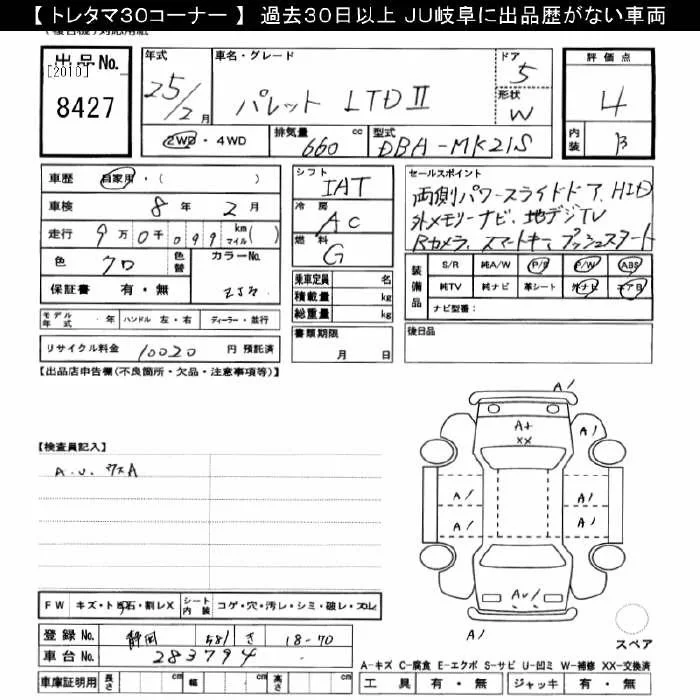 【 トレタマ30コーナー 】 過去30日以上 JU岐阜に出品歴がない車両
出品No.
[2010]
8427
年式 25/2月
車名・グレード パレット LTDⅡ
ドア 5
形状 W
2WD・4WD
排気量 660 cc
型式 DBA-MK21S
評価点 4
内装 B
車歴 自家用・( )
車検 8年 2月
走行 9万0千099 km マイル( )
色 クロ 色替 カラーNo. ZJ3
保証書 有・無
シフト IAT
冷房 AC
燃料 G
乗車定員 名
積載量 kg
総重量 kg
セールスポイント
両側パワースライドドア、HID
外メモリーナビ、地デジTV
Rカメラ、スマートキー、プッシュスタート
装備品 S/R 純A/W P/S P/W ABS
純TV 純ナビ 革シート 外ナビ エアB
ナビ型番:
モデル年式 ・ 年 ハンドル 左・右 ディーラー・並行
書類期限 月 日
後日品
リサイクル料金 10020 円 預託済
【出品店申告欄(不良箇所・欠品・注意事項等)】
【検査員記入】
A.U. ワスA
A1
A1
A+
XX
A1
A1
A1
A1
A1
AU1
A1
スペア
FW キズ・トビ石・割レX シート内装 コゲ・穴・汚レ・シミ・破レ・スレ
登録No. 静岡 581 さ 18-70
車台No. 283794
A-キズ C-腐食 E-エクボ S-サビ U-凹ミ W-補修 XX-交換済
車庫証明用 長さ cm 幅 cm 高さ cm
工具 有・無 ジャッキ 有・無